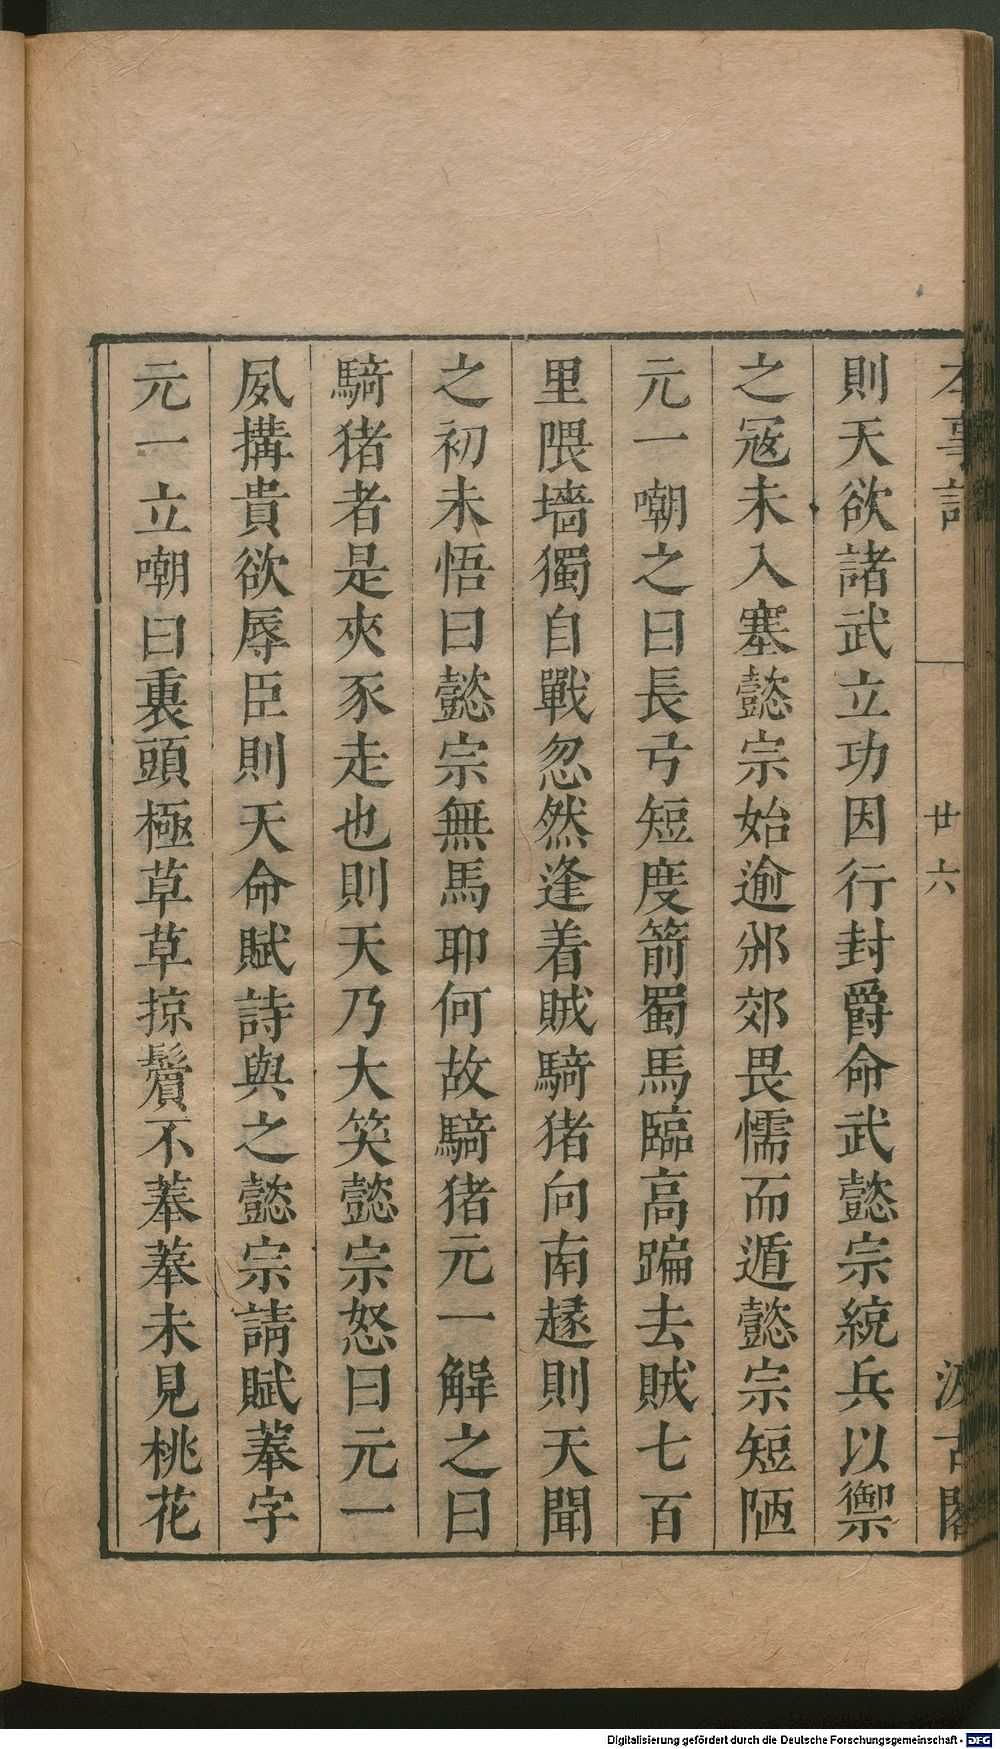 本事詩
廿六
汲古閣
則天欲諸武立功因行封爵命武懿宗統兵以禦
之寇未入塞懿宗始逾邠郊畏懦而遁懿宗短陋
元一嘲之曰長弓短度箭蜀馬臨高蹁去賊七百
里隈墻獨自戰忽然逢着賊騎猪向南趂則天聞
之初未悟曰懿宗無馬耶何故騎猪元一解之曰
騎猪者是夾豕走也則天乃大笑懿宗怒曰元一
夙搆貴欲辱臣則天命賦詩與之懿宗請賦菶字
元一立嘲曰裹頭極草草掠鬢不菶菶未見桃花
Digitalisierung gefördert durch die Deutsche Forschungsgemeinschaft - DFG